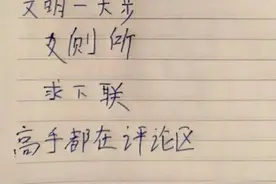 文明一大步
女则所
求下联
高手都在评论区